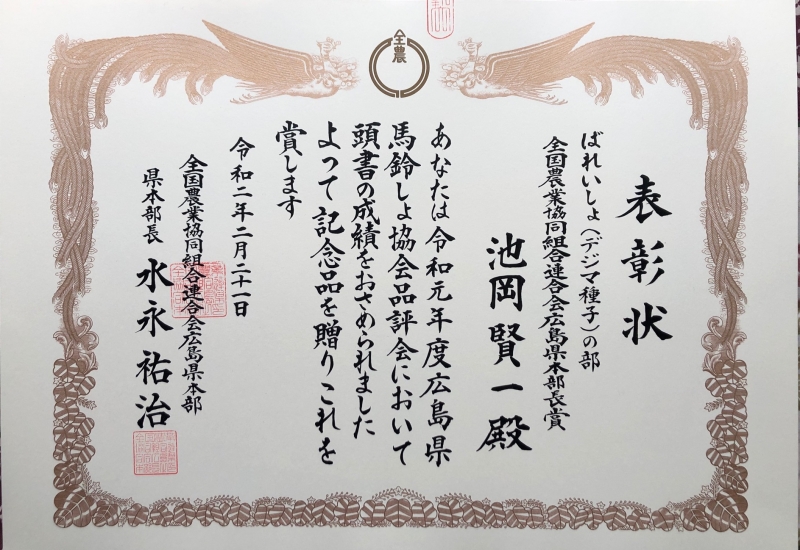 全農
表彰状
ばれいしょ(デジマ種子)の部
全国農業協同組合連合会広島県本部長賞
池岡賢一殿
あなたは令和元年度広島県
馬鈴しょ協会品評会において
頭書の成績をおさめられました
よって記念品を贈りこれを
賞します
令和二年二月二十一日
全国農業協同組合連合会広島県本部
県本部長 水永祐治